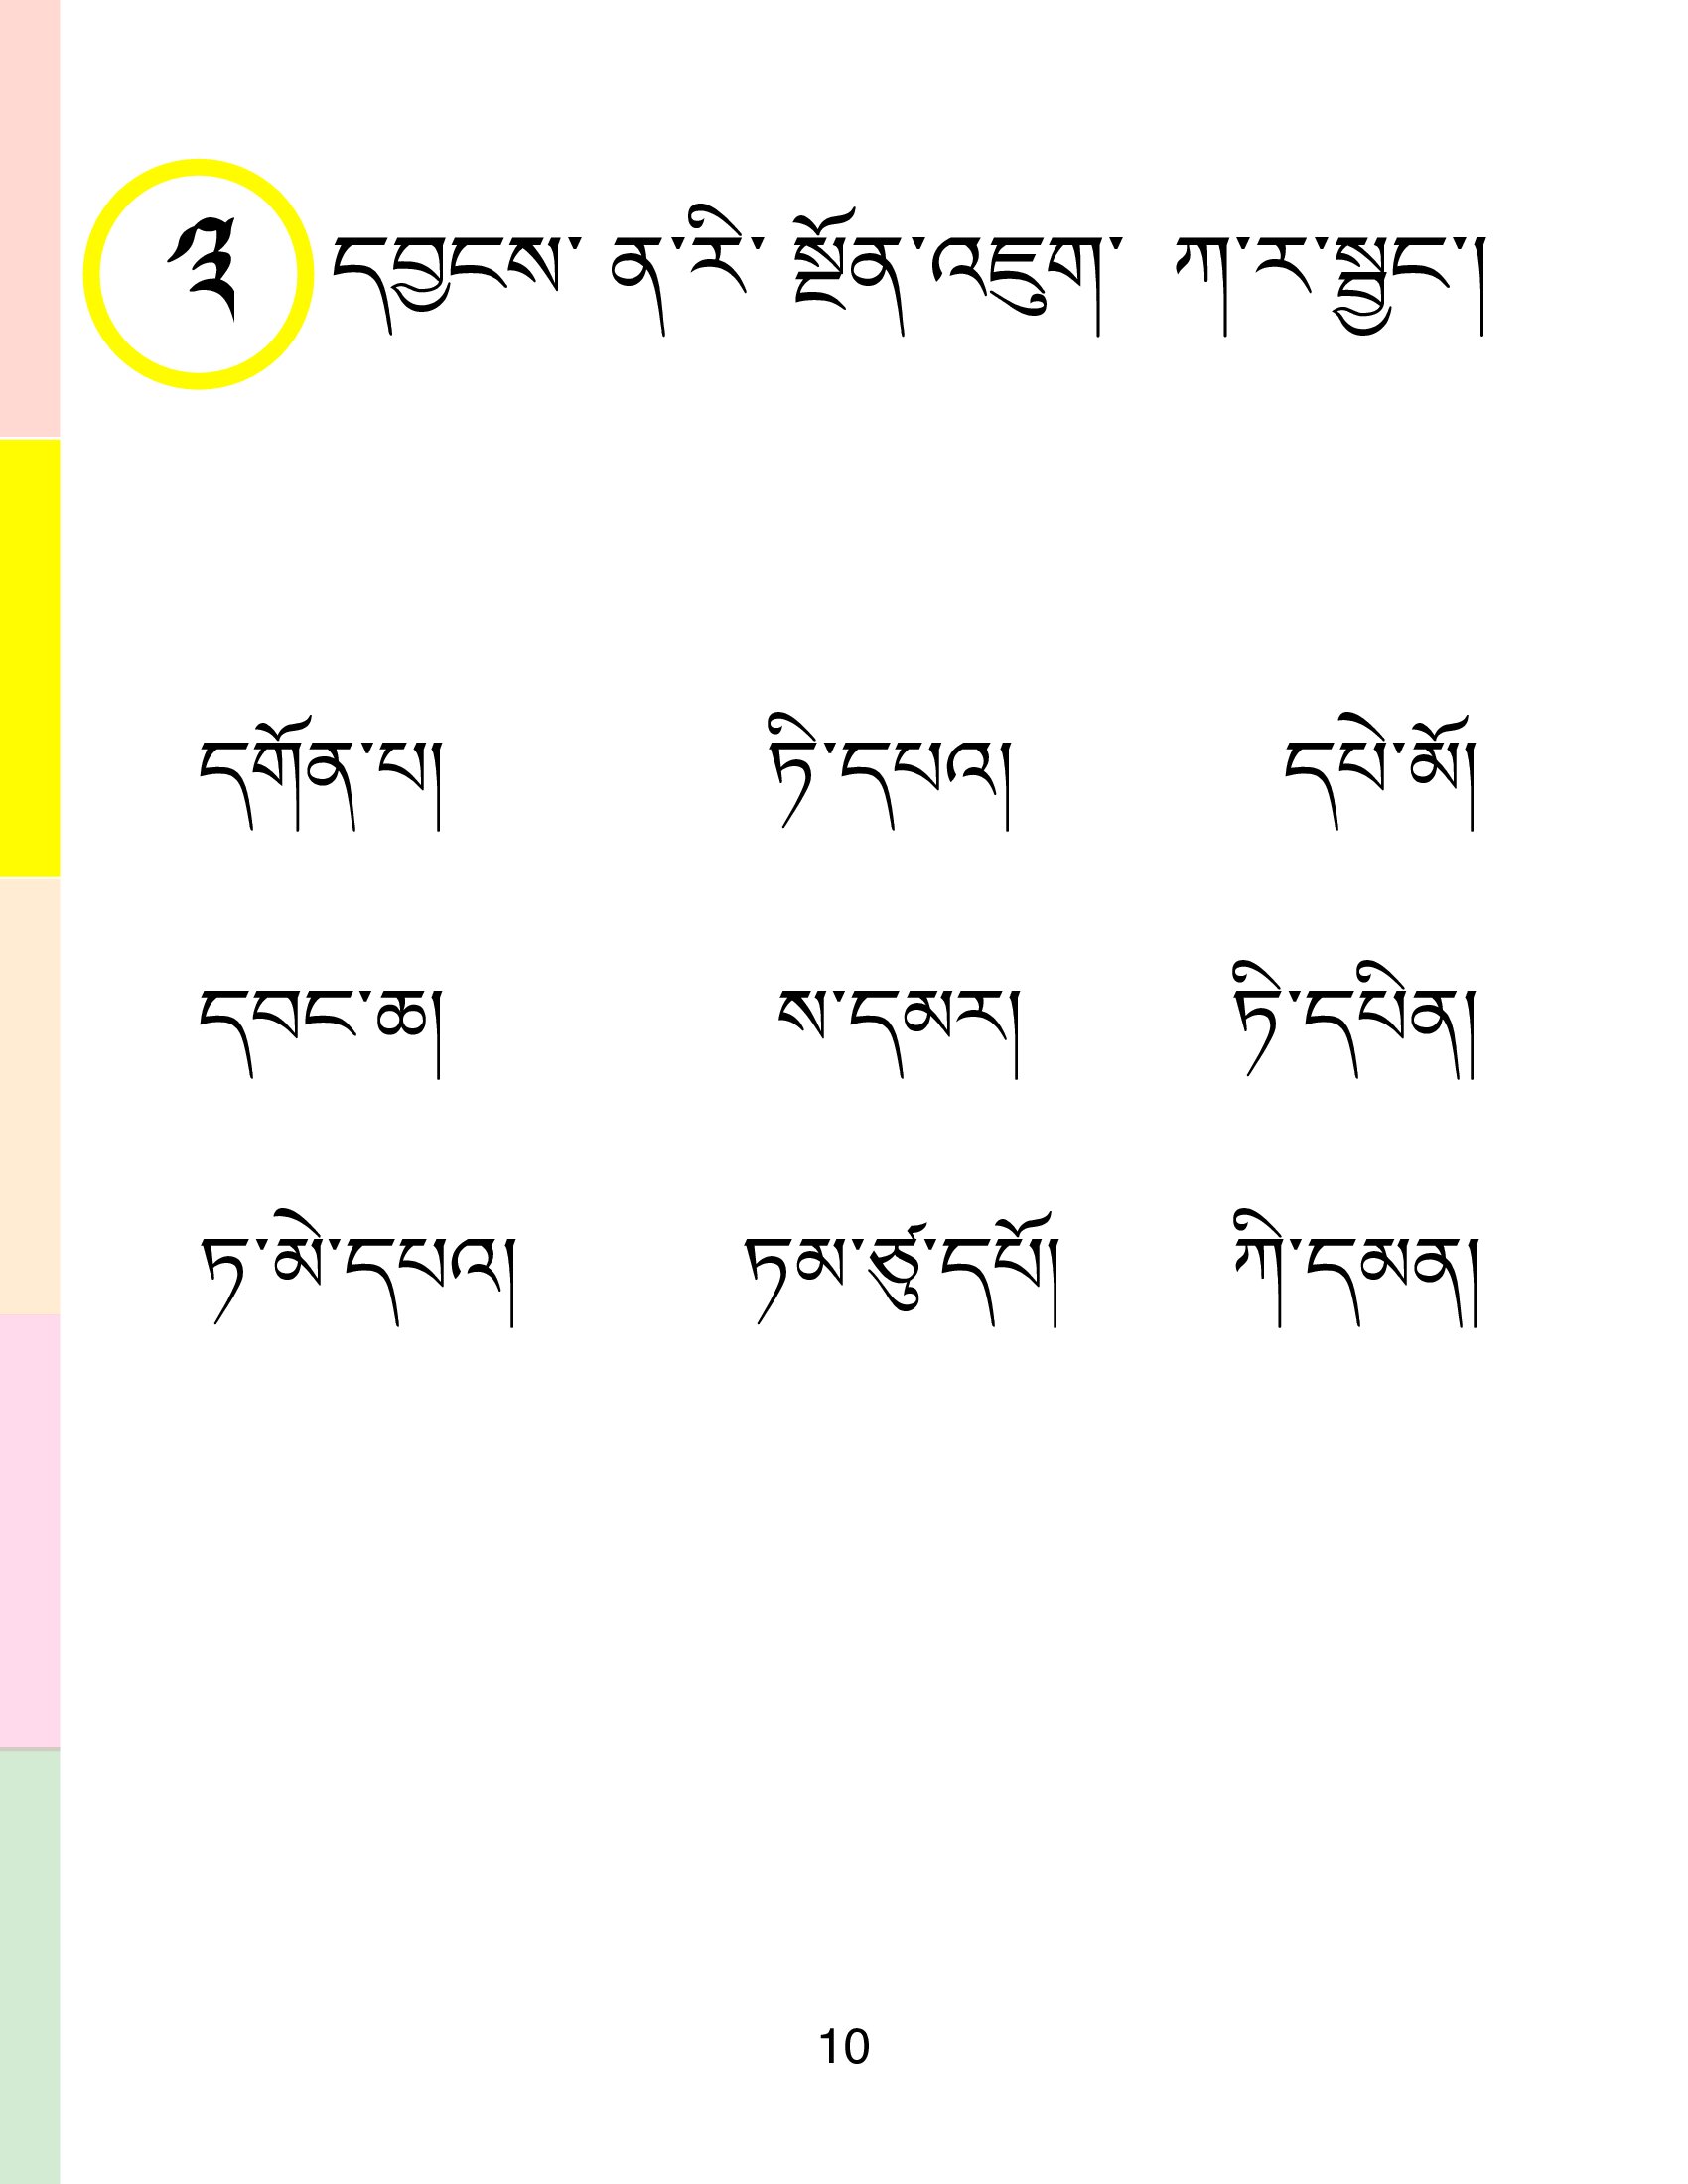 ༣ དབྱངས་ ན་རི་ སྔོན་འཇུག་ ཀ་ར་སྦྱང་།
དགོན་པ། ཏི་དཔའ། དཔེ་མོ།
དབང་ཆ། ས་དམར། ཏི་དཔིན།
ཏ་མེ་དཔའ། ཏམ་ཙུ་དཔོ། ཀི་དམན།
10